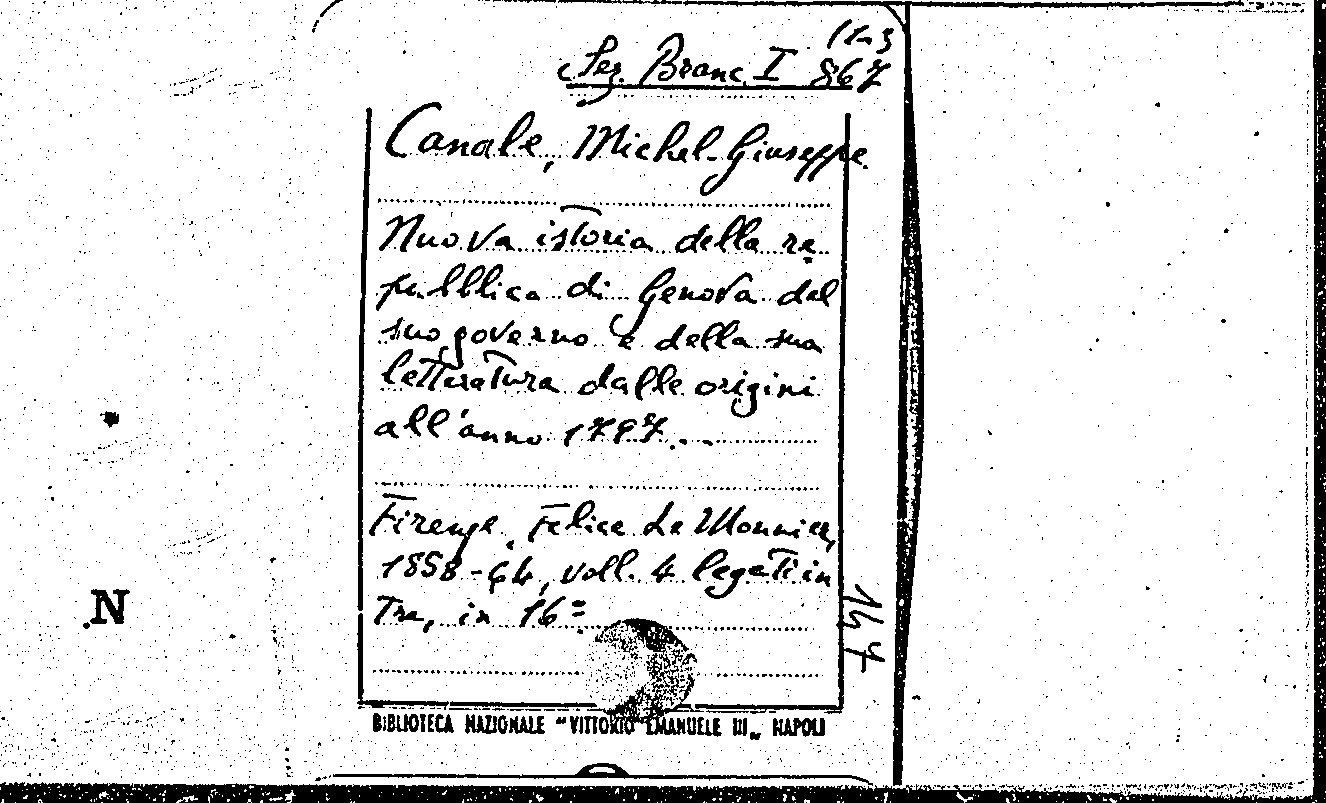 Sez. Branc. I 867
Canale, Michel-Giuseppe
Nuova istoria della re
pubblica di Genova del
suo governo e della sua
letteratura dalle origini
all'anno 1797...
Firenze, Felice Le Monnier,
1858-64, voll. 4 legati in
Tre, in 16=
147
N
BIBLIOTECA NAZIONALE "VITTORIO EMANUELE III„ NAPOLI